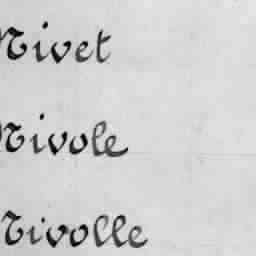 Nivet
Nivole
Nivolle